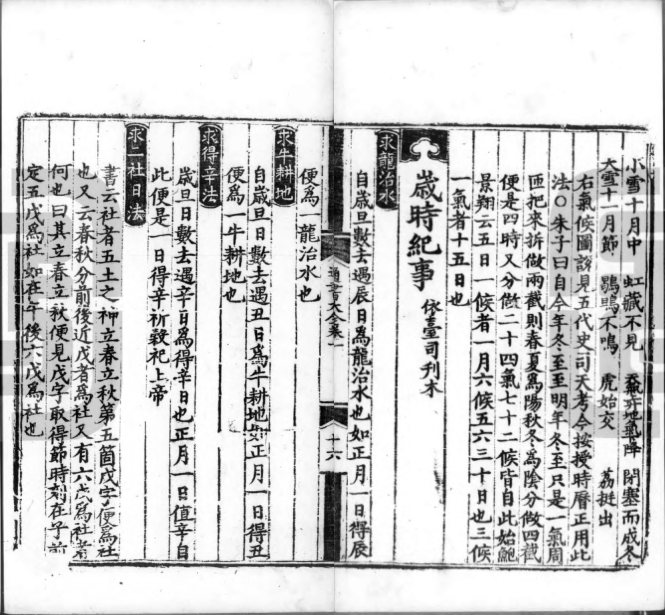 小雪十月中 虹藏不見 天氣升地氣降 閉塞而成冬
大雪十一月節 鶡鴠不鳴 虎始交 荔挺出
右氣候圖說見五代史司天考今按授時曆正用此
法○朱子曰自今年冬至至明年冬至只是一氣周
匝把來拆做兩截則春夏為陽秋冬為陰分做四截
便是四時又分做二十四氣七十二候皆自此始鮑
景翔云五日一候者一月六候五六三十日也三候
一氣者十五日也
歲時紀事 依臺司刊本
求龍治水
自歲旦日數去遇辰日為龍治水也如正月一日得辰
便為一龍治水也
求牛耕地
自歲旦日數去遇丑日為牛耕地如正月一日得丑
便為一牛耕地也
求得辛法
歲旦日數去遇辛日為得辛日也正月一日值辛自
此便是一日得辛祈穀祀上帝
求二社日法
書云社者五土之神立春立秋第五箇戊字便為社
也又云春秋分前後近戊者為社又有六戊為社者
何也曰其立春立秋便見戊字取得節時刻在子前
定五戊為社如在午後六戊為社也
通書大全卷一
十六